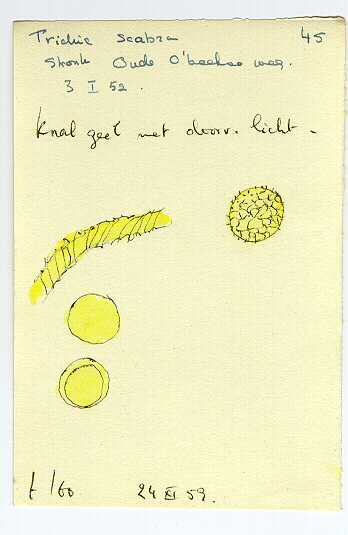 Trichie scabra 45
Stronk Oude O'beekse weg.
3 I 52.
Knal geel met doorv. licht.
t 160
24 XI 59.